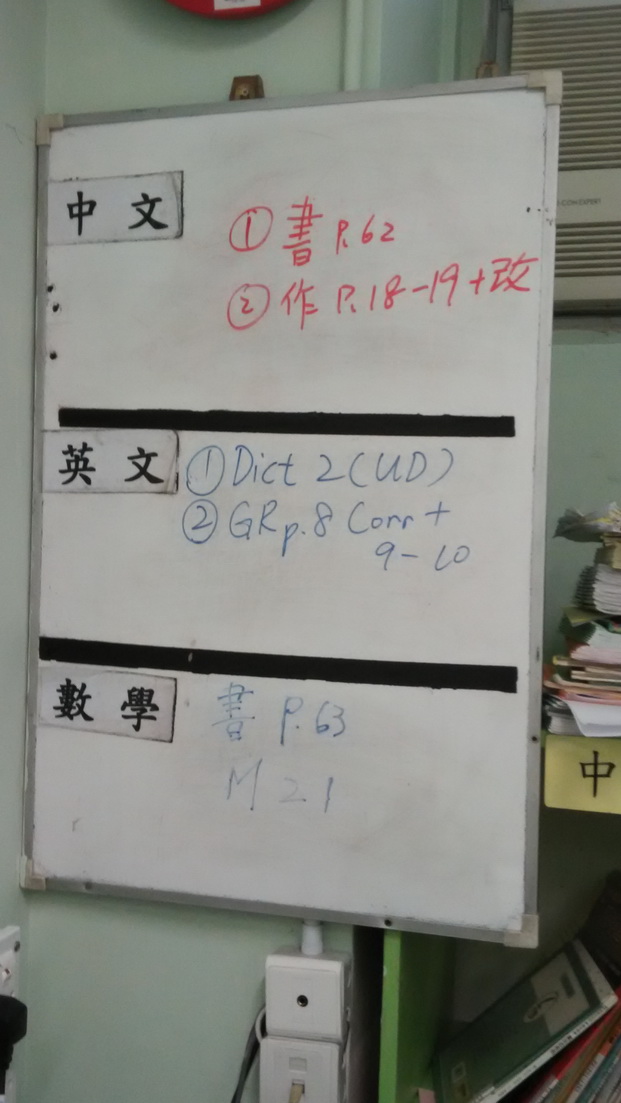 中文
① 書 P.62
② 作 P.18-19+改
英文
① Dict 2 (UD)
② GR p.8 Corr +
9-10
數學
書 P.63
M21
中